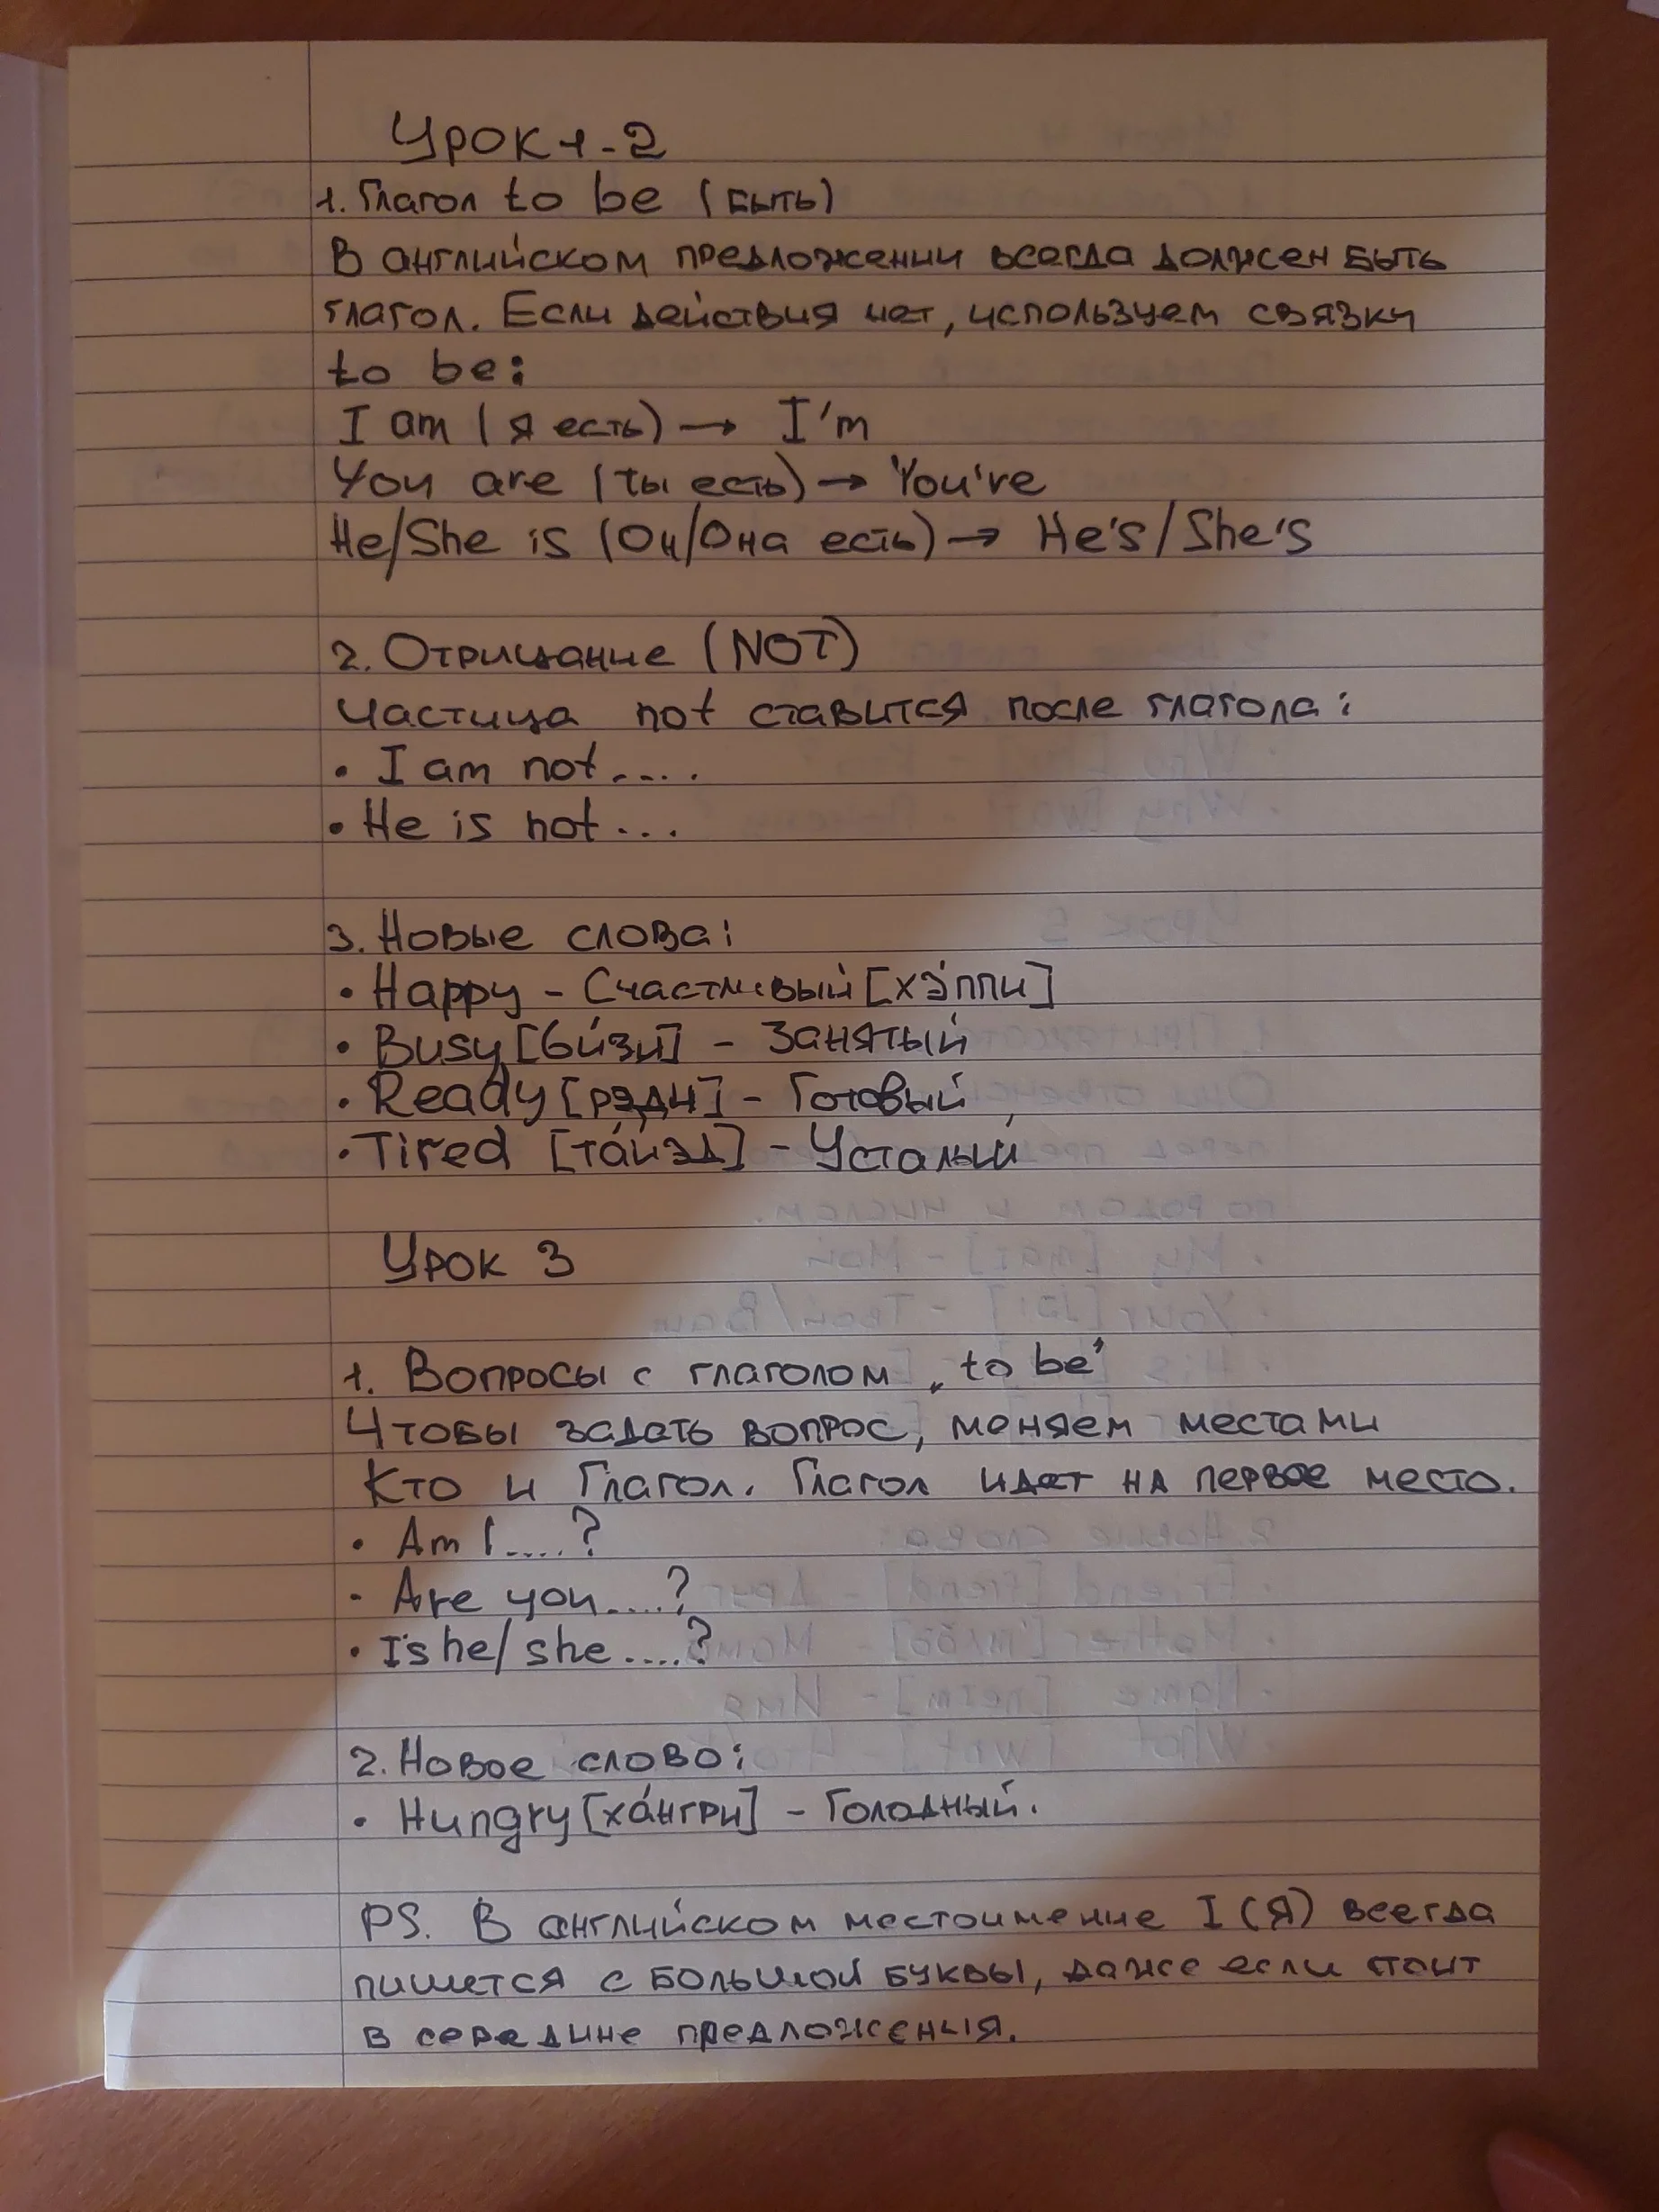 Урок 1-2
1. Глагол to be (быть)
В английском предложении всегда должен быть
глагол. Если действия нет, используем связку
to be:
I am (я есть) → I'm
You are (ты есть) → You're
He/She is (Он/Она есть) → He's/She's
2. Отрицание (NOT)
Частица not ставится после глагола:
• I am not....
• He is not...
3. Новые слова:
• Happy - Счастливый [хэ́ппи]
• Busy [би́зи] - Занятый
• Ready [рэ́ди] - Готовый
• Tired [та́йэд] - Усталый
Урок 3
1. Вопросы с глаголом „to be"
Чтобы задать вопрос, меняем местами
Кто и Глагол. Глагол идет на первое место.
• Am I....?
- Are you....?
• Is he/she....?
2. Новое слово:
• Hungry [ха́нгри] - Голодный.
PS. В английском местоимение I (Я) всегда
пишется с большой буквы, даже если стоит
в середине предложения.